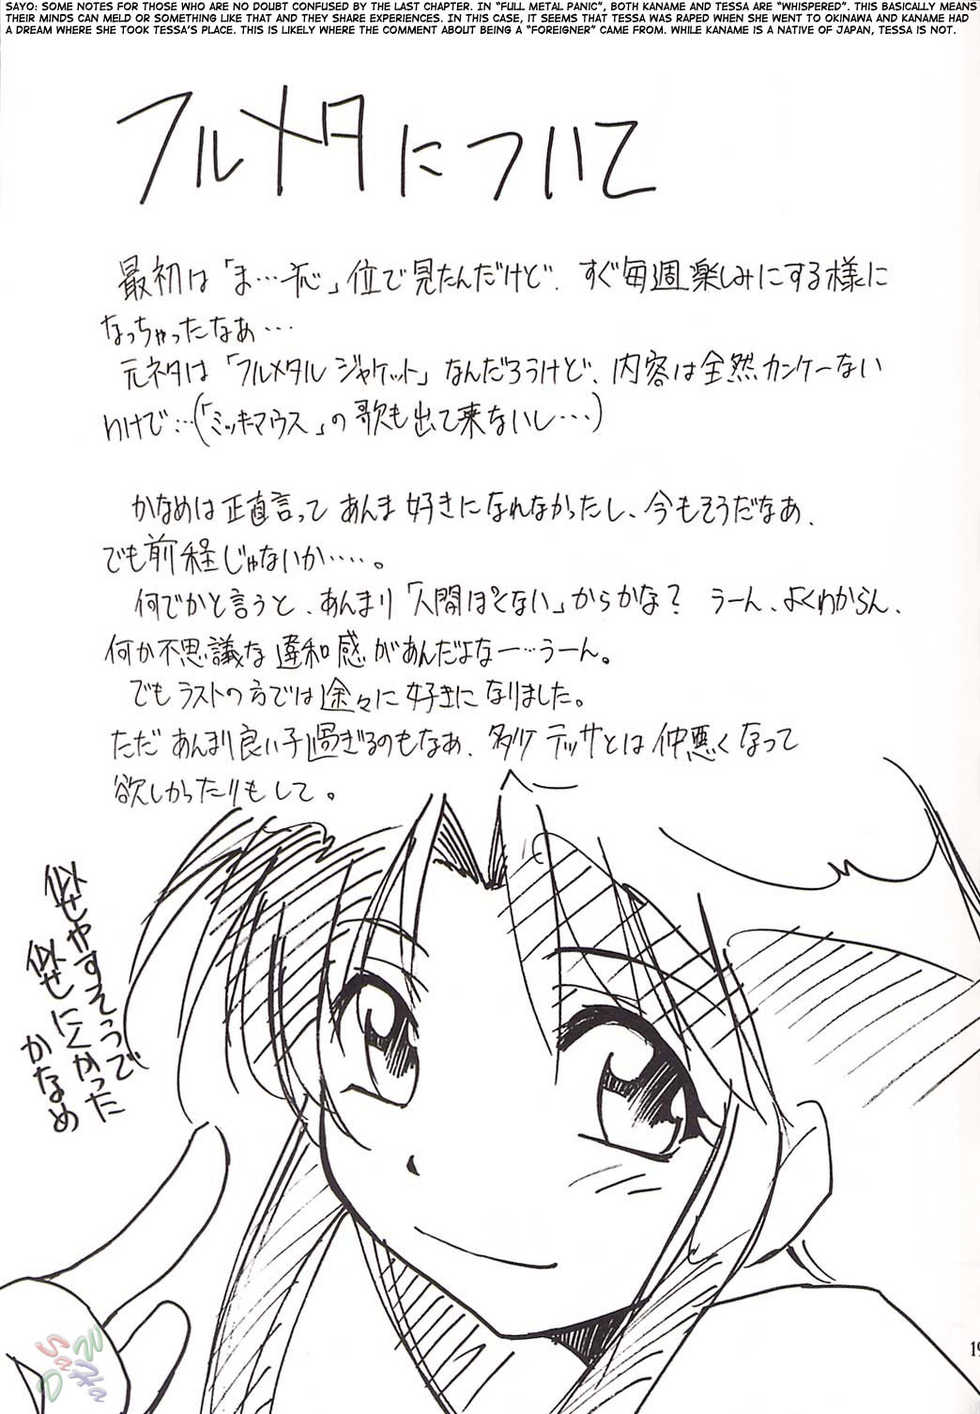 SAYO: SOME NOTES FOR THOSE WHO ARE NO DOUBT CONFUSED BY THE LAST CHAPTER. IN "FULL METAL PANIC", BOTH KANAME AND TESSA ARE "WHISPERED". THIS BASICALLY MEANS
THEIR MINDS CAN MELD OR SOMETHING LIKE THAT AND THEY SHARE EXPERIENCES. IN THIS CASE, IT SEEMS THAT TESSA WAS RAPED WHEN SHE WENT TO OKINAWA AND KANAME HAD
A DREAM WHERE SHE TOOK TESSA'S PLACE. THIS IS LIKELY WHERE THE COMMENT ABOUT BEING A "FOREIGNER" CAME FROM. WHILE KANAME IS A NATIVE OF JAPAN, TESSA IS NOT.
フルメタについて
最初は「ま…」位で見たんだけど、すぐ毎週楽しみにする様に
なっちゃったなぁ…
元ネタは「フルメタル ジャケット」なんだろうけど、内容は全然カンケーない
わけで…(「ミッキーマウス」の歌も出て来ないし…)
かなめは正直言って あんま好きになれなかったし、今もそうだなあ、
でも前程じゃないか……。
何でかと言うと、あんまり「人間ぽくない」からかな? うーん、よくわからん、
何か不思議な違和感があんだよなー…うーん。
でもラストの方では途々に好きになりました。
ただ あんまり良い子過ぎるのもなぁ、多少 テッサとは仲悪くなって
欲しかったりもして。
似せやすそうで
似せにくかった
かなめ
19